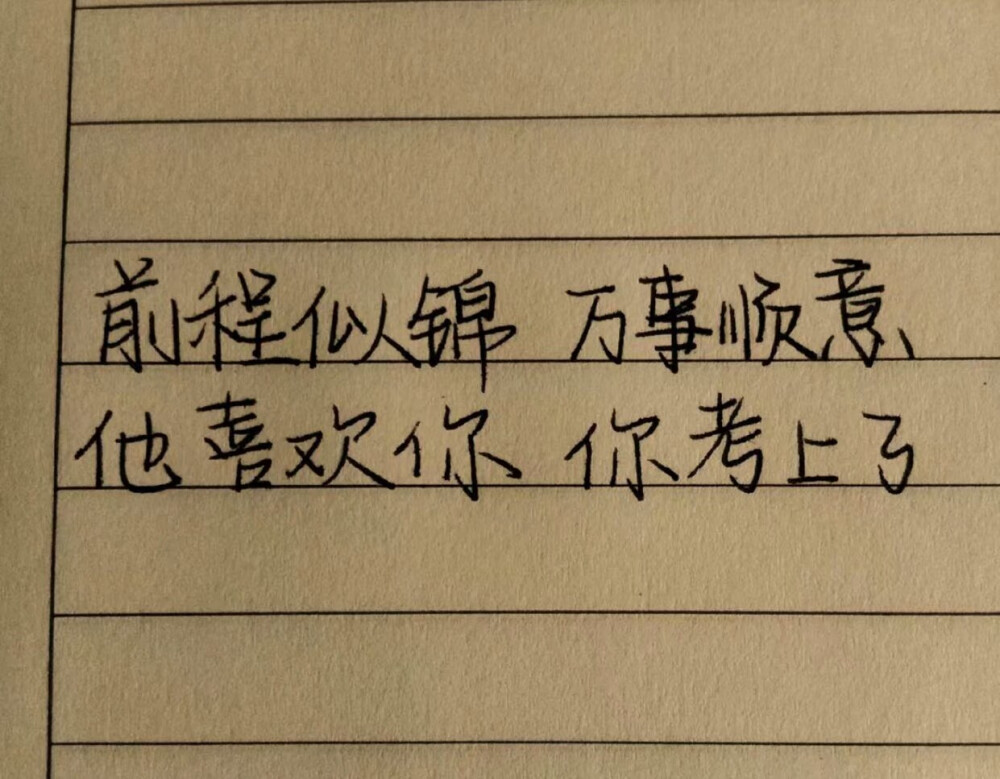 前程似锦 万事顺意
他喜欢你 你考上了